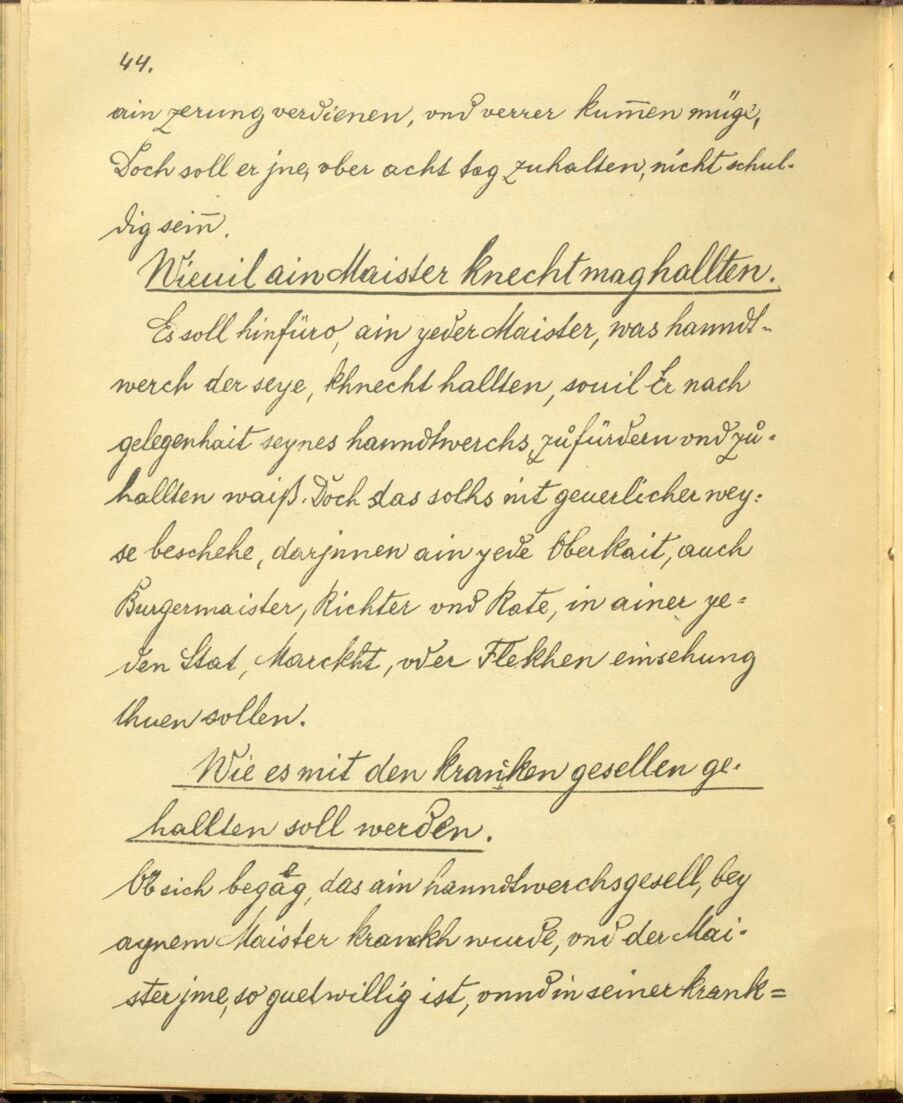 44.
ain zerung verdienen, vnd verrer kum̅en müge,
Doch soll er jne, vber acht tag zuhalten, nicht schul-
dig sein̅.
Wieuil ain Maister knecht mag hallten.
Es soll hinfüro, ain yeder Maister, was hanndt-
werch der seye, khnecht hallten, souil Er nach
gelegenhait seynes hanndtwerchs, zůfürdern vnd zů-
hallten waiß. Doch das solhs nit geuerlicher wey-
se beschehe, darjnnen ain yede Oberkait, auch
Burgermaister, Richter vnd Rate, in ainer ye-
den Stat, Marckht, oder Flekhen einsehung
thuen sollen.
Wie es mit den kranken gesellen ge-
hallten soll werden.
Ob sich begåg, das ain hanndtwerchsgesell, bey
aynem Maister krankh wurde, vnd der Mai-
ster jme, so guetwillig ist, vnnd in seiner krank=